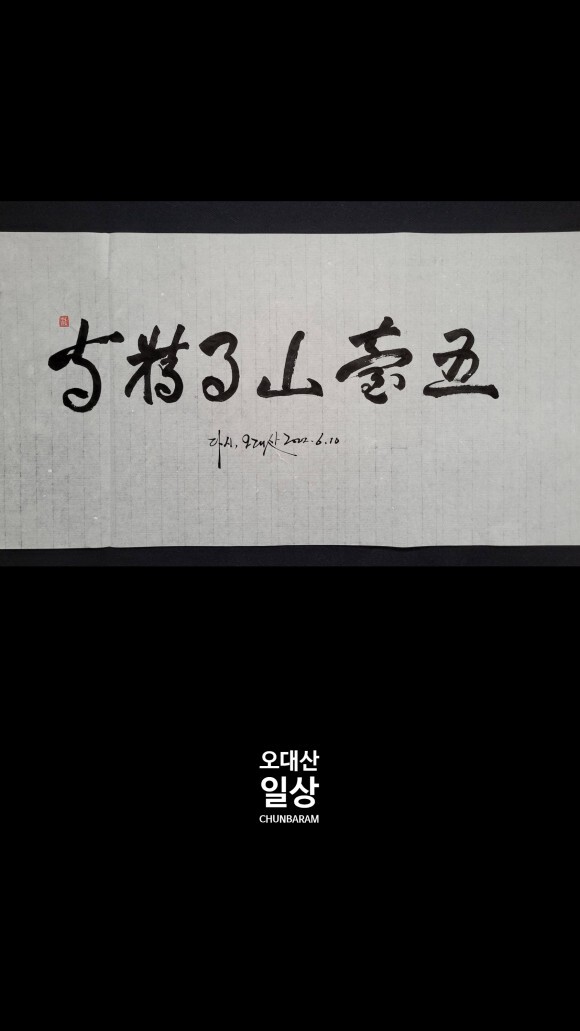 五臺山月精寺
다시, 오대산 2022.6.10
오대산
일상
CHUNBARAM